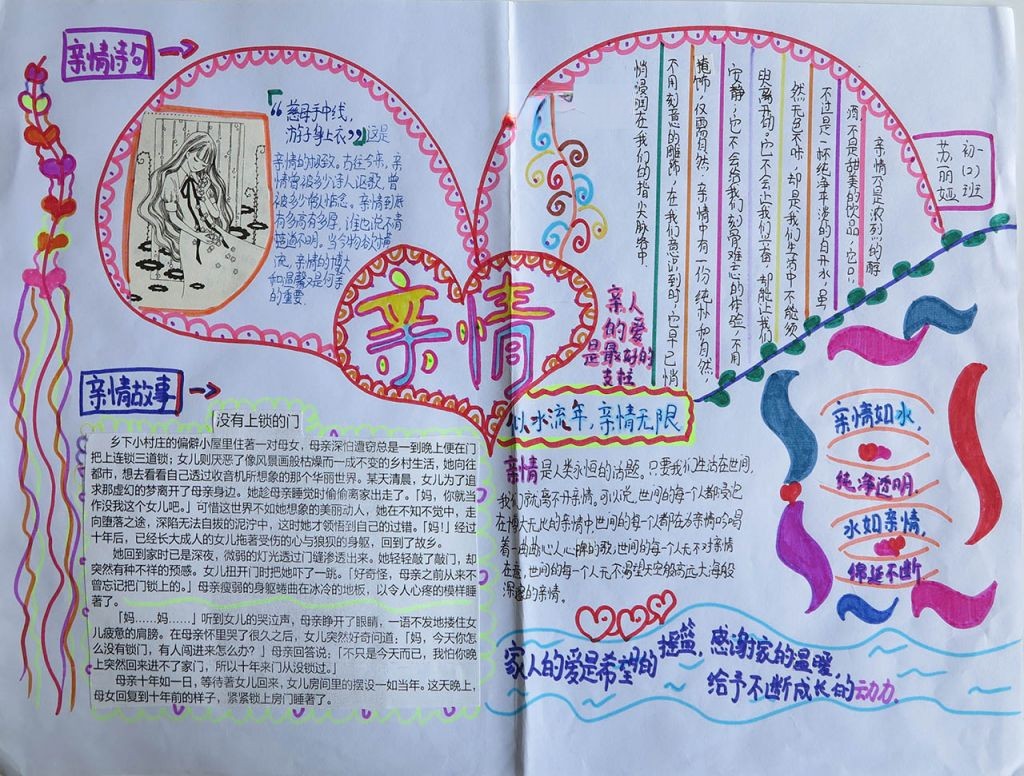 亲情诗句
“慈母手中线,
游子身上衣”这是
亲情的极致。古往今来,亲
情曾被多少诗人讴歌,曾
被多少散人惦念。亲情到底
有多高有多厚,谁也说不清
道不明。当今物欲横
流,亲情的博大
和温馨又是何等
的重要.
亲情
亲人
的爱
是最好的
支柱
亲情不是浓烈的醇
酒,不是甜美的饮品,它只
不过是一杯纯净平淡的白开水,虽
然无色不味,却是我们生活中不能须
臾离开的。它不会让我们亢奋,却能让我们
安静,它不会给我们刻骨难忘心的体验,不用
掩饰,仅要自然,亲情中有一份纯朴和自然,
不用刻意的雕饰,在我们意识到时,它早已悄
悄浸润在我们的指尖脉络中.
初一
(2)班
苏丽娅
亲情故事
没有上锁的门
乡下小村庄的偏僻小屋里住着一对母女,母亲深怕遭窃总是一到晚上便在门
把上连锁三道锁;女儿则厌恶了像风景画般枯燥而一成不变的乡村生活,她向往
都市,想去看看自己透过收音机所想象的那个华丽世界。某天清晨,女儿为了追
求那虚幻的梦离开了母亲身边。她趁母亲睡觉时偷偷离家出走了。「妈,你就当
作没我这个女儿吧。」可惜这世界不如她想象的美丽动人,她在不知不觉中,走
向堕落之途,深陷无法自拔的泥泞中,这时她才领悟到自己的过错。「妈!」经过
十年后,已经长大成人的女儿拖著受伤的心与狼狈的身躯,回到了故乡。
她回家时已是深夜,微弱的灯光透过门缝渗透出来。她轻轻敲了敲门,却
突然有种不祥的预感。女儿扭开门时把她吓了一跳。「好奇怪,母亲之前从来不
曾忘记把门锁上的。」母亲瘦弱的身躯蜷曲在冰冷的地板,以令人心疼的模样睡
著了。
「妈……妈……」听到女儿的哭泣声,母亲睁开了眼睛,一语不发地搂住女
儿疲惫的肩膀。在母亲怀里哭了很久之后,女儿突然好奇问道:「妈,今天你怎
么没有锁门,有人闯进来怎么办?」母亲回答说:「不只是今天而已,我怕你晚
上突然回来进不了家门,所以十年来门从没锁过。」
母亲十年如一日,等待著女儿回来,女儿房间里的摆设一如当年。这天晚上,
母女回复到十年前的样子,紧紧锁上房门睡著了。
似水流年,亲情无限
亲情是人类永恒的话题。只要我们生活在世间,
我们就离不开亲情。可以说,世间的每个人都受它
在博大无比的亲情中世间的每个人都在为亲情吟唱
着一曲曲沁人心脾的歌,世间的每个人无不对亲情
在意,世间的每一个人无不渴望天空般高远大海般
深邃的亲情。
亲情如水,
纯净透明.
水如亲情,
绵延不断.
家人的爱是希望的摇篮,感谢家的温暖,
给予不断成长的动力.